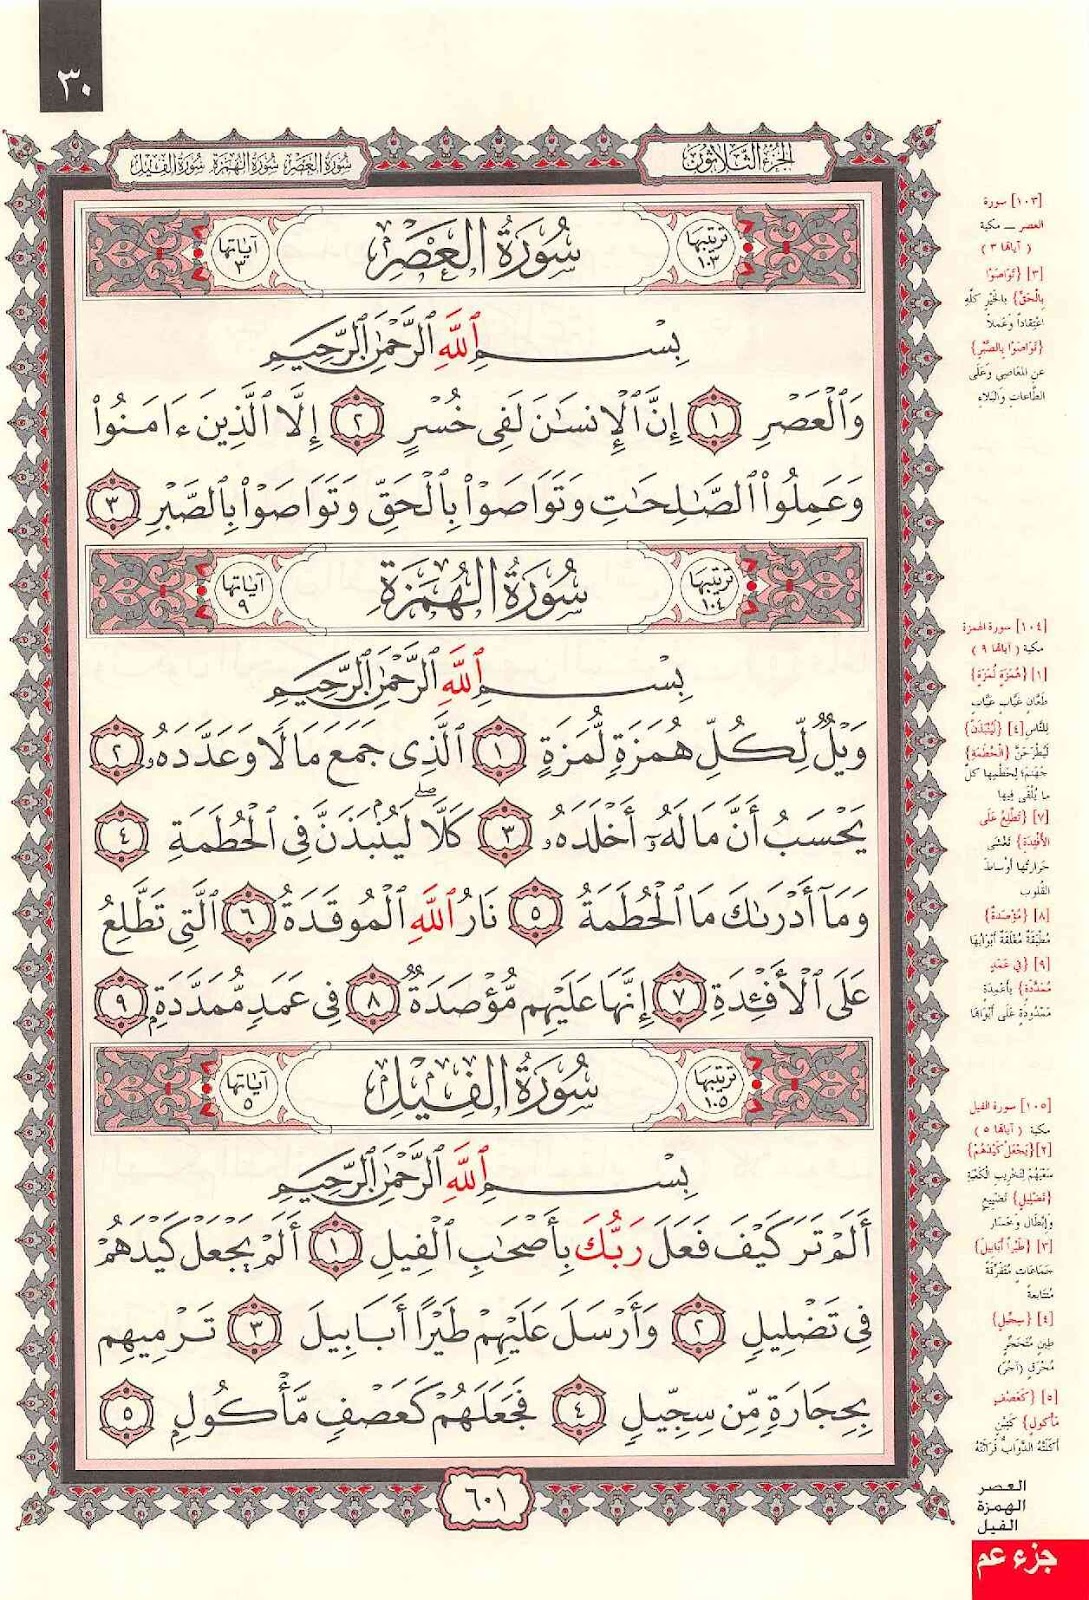 ٣٠
الجزء الثلاثون
سورة العصر سورة الهمزة سورة الفيل
ترتيبها ١٠٣
سُورَةُ العَصْرِ
آياتها ٣
بِسْمِ ٱللَّهِ ٱلرَّحْمَٰنِ ٱلرَّحِيمِ
وَٱلْعَصْرِ ١ إِنَّ ٱلْإِنسَٰنَ لَفِى خُسْرٍ ٢ إِلَّا ٱلَّذِينَ ءَامَنُوا۟
وَعَمِلُوا۟ ٱلصَّٰلِحَٰتِ وَتَوَاصَوْا۟ بِٱلْحَقِّ وَتَوَاصَوْا۟ بِٱلصَّبْرِ ٣
ترتيبها ١٠٤
سُورَةُ الهُمَزَةِ
آياتها ٩
بِسْمِ ٱللَّهِ ٱلرَّحْمَٰنِ ٱلرَّحِيمِ
وَيْلٌ لِّكُلِّ هُمَزَةٍ لُّمَزَةٍ ١ ٱلَّذِى جَمَعَ مَالًا وَعَدَّدَهُۥ ٢
يَحْسَبُ أَنَّ مَالَهُۥٓ أَخْلَدَهُۥ ٣ كَلَّا ۖ لَيُنۢبَذَنَّ فِى ٱلْحُطَمَةِ ٤
وَمَآ أَدْرَىٰكَ مَا ٱلْحُطَمَةُ ٥ نَارُ ٱللَّهِ ٱلْمُوقَدَةُ ٦ ٱلَّتِى تَطَّلِعُ
عَلَى ٱلْأَفْـِٔدَةِ ٧ إِنَّهَا عَلَيْهِم مُّؤْصَدَةٌ ٨ فِى عَمَدٍ مُّمَدَّدَةٍۭ ٩
ترتيبها ١٠٥
سُورَةُ الفِيلِ
آياتها ٥
بِسْمِ ٱللَّهِ ٱلرَّحْمَٰنِ ٱلرَّحِيمِ
أَلَمْ تَرَ كَيْفَ فَعَلَ رَبُّكَ بِأَصْحَٰبِ ٱلْفِيلِ ١ أَلَمْ يَجْعَلْ كَيْدَهُمْ
فِى تَضْلِيلٍ ٢ وَأَرْسَلَ عَلَيْهِمْ طَيْرًا أَبَابِيلَ ٣ تَرْمِيهِم
بِحِجَارَةٍ مِّن سِجِّيلٍ ٤ فَجَعَلَهُمْ كَعَصْفٍ مَّأْكُولٍۭ ٥
٦٠١
[١٠٣] سورة
العصر ــ مكية
( آياتها ٣ )
[٣] {تَوَاصَوْا
بِالْحَقِّ} بِالخَيْرِ كلِّهِ
اعْتِقَاداً وَعَملاً
{تَوَاصَوْا بِالصَّبْرِ}
عنِ المعَاصِي وَعَلَى
الطَّاعاتِ وَالبَلاءِ
[١٠٤] سورة الهمزة
مكية ( آياتها ٩ )
[١] {هُمَزَةٍ لُمَزَةٍ}
طَعَّانٍ عَيَّابٍ
لِلنَّاسِ [٤] {لَيُنْبَذَنَّ}
لَيُطْرَحَنَّ {الْحُطَمَةِ}
جَهَنم لِحَطْمِها كلَّ
ما يُلْقَى فِيها
[٧] {تَطَّلِعُ عَلَى
الأَفْئِدَةِ} تَغْشَى
حَرارتُها أوْساطَ
القُلوب
[٨] {مُؤْصَدَةٌ}
مُطْبَقَةٌ مُغْلَقَةٌ أَبْوَابُهَا
[٩] {فِي عَمَدٍ
مُمَدَّدَةٍ} بِأَعْمِدَةٍ
مَمْدُودَةٍ عَلَى أَبْوابِهَا
[١٠٥] سورة الفيل
مكية ( آياتها ٥ )
[٢] {يَجْعَلْ كَيْدَهُمْ}
سَعْيَهُمْ لِتَخْرِيبِ الْكَعْبَةِ
{تَضْلِيلٍ} تَضْيِيعٍ
وإِبْطَالٍ وَخَسَارٍ
[٣] {طَيْراً أَبَابِيلَ}
جَمَاعَاتٍ مُتَفَرِّقَةً
مُتَتَابعةً
[٤] {سِجِّيلٍ}
طِينٍ مُتَحَجِّرٍ
مُحْرَقٍ (آجُرٍّ)
[٥] {كَعَصْفٍ
مَأْكُولٍ} كَتِبْنٍ
أَكَلَتْهُ الدَّوَابُّ فَرَاثَتْهُ
العصر
الهمزة
الفيل
جزء عم